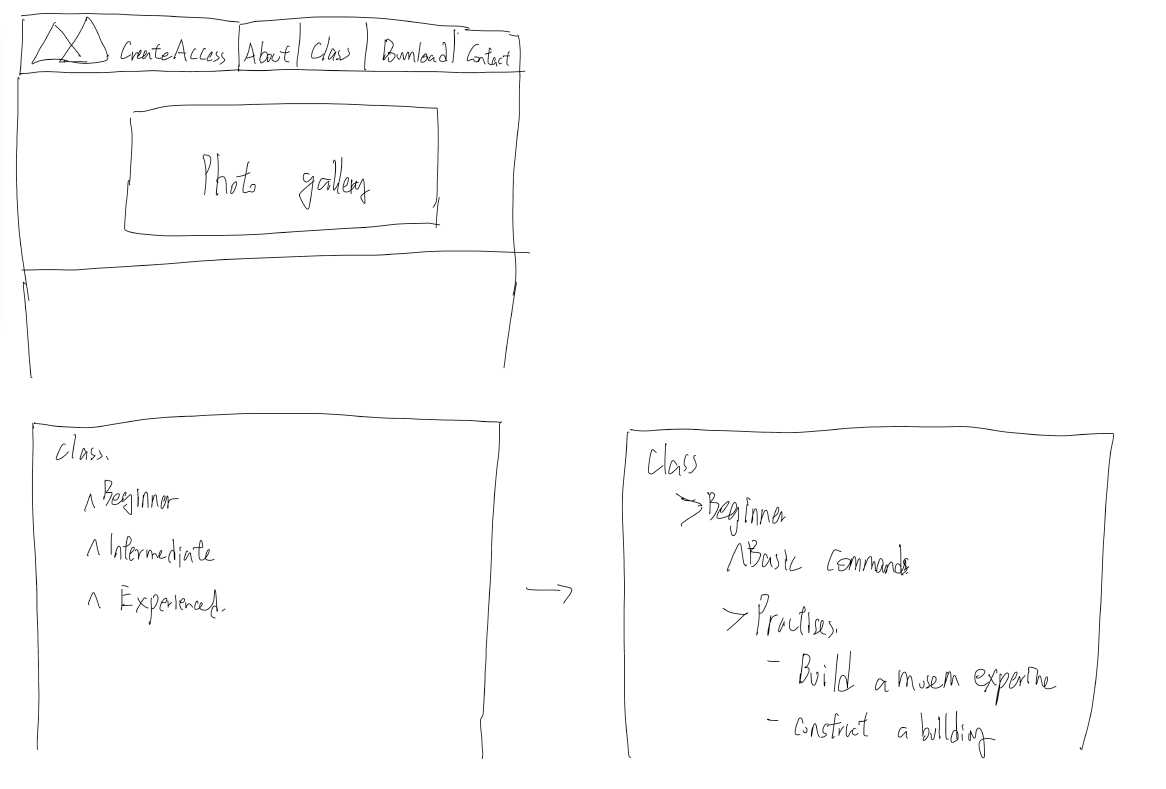 CreateAccess About Class Download Contact
Photo gallery
Class.
^ Beginner
^ Intermediate
^ Experienced.
Class
> Beginner
^ Basic Commands
> Practises.
- Build a musem experine
- construct a building